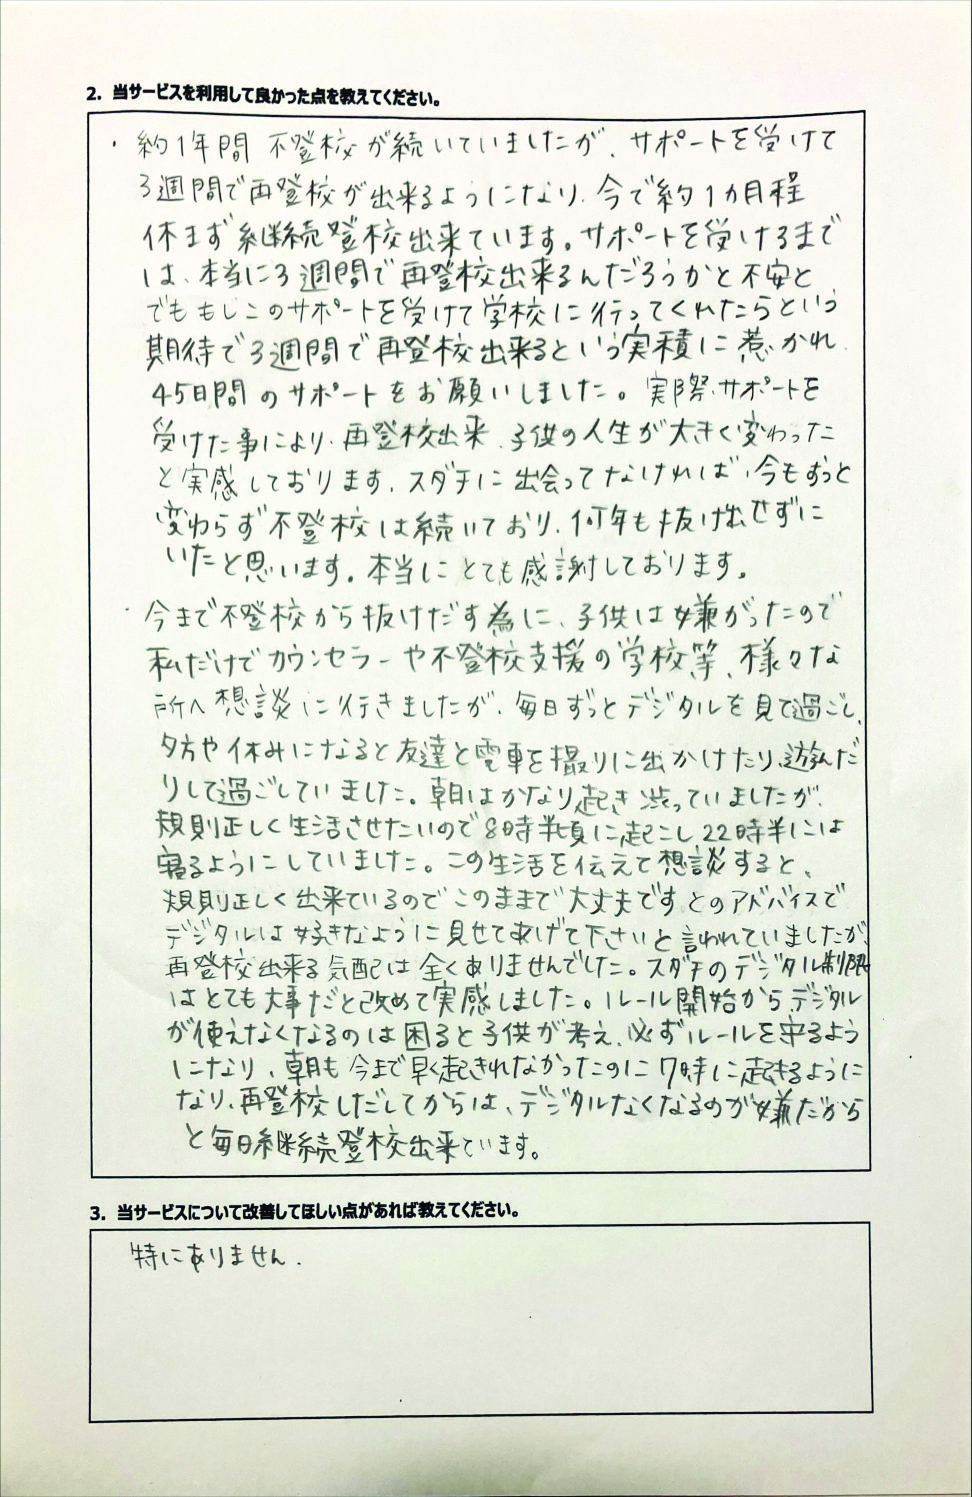 2. 当サービスを利用して良かった点を教えてください。
・約1年間 不登校が続いていましたが、サポートを受けて
3週間で再登校が出来るようになり、今で約1カ月程
休まず継続登校出来ています。サポートを受けるまで
は、本当に3週間で再登校出来るんだろうかと不安と
でももしこのサポートを受けて学校に行ってくれたらという
期待で3週間で再登校出来るという実積に惹かれ、
45日間のサポートをお願いしました。実際、サポートを
受けた事により、再登校出来、子供の人生が大きく変わった
と実感しております。スダチに出会ってなければ、今もずっと
変わらず不登校は続いており、何年も抜け出せずに
いたと思います。本当にとても感謝しております。
・今まで不登校から抜けだす為に、子供は嫌がったので
私だけでカウンセラーや不登校支援の学校等、様々な
所へ想談に行きましたが、毎日ずっとデジタルを見て過ごし、
夕方や休みになると友達と電車を撮りに出かけたり、遊んだ
りして過ごしていました。朝はかなり起き渋っていましたが、
規則正しく生活させたいので8時半頃に起こし22時半には
寝るようにしていました。この生活を伝えて想談すると、
規則正しく出来ているのでこのままで大丈夫です、とのアドバイスで
デジタルは好きなように見せてあげて下さいと言われていましたが、
再登校出来る気配は全くありませんでした。スダチのデジタル制限
はとても大事だと改めて実感しました。ルール開始から、デジタル
が使えなくなるのは困ると子供が考え、必ずルールを守るよう
になり、朝も今まで早く起きれなかったのに7時に起きるように
なり、再登校しだしてからは、デジタルなくなるのが嫌だから
と毎日継続登校出来ています。
3. 当サービスについて改善してほしい点があれば教えてください。
特にありません。